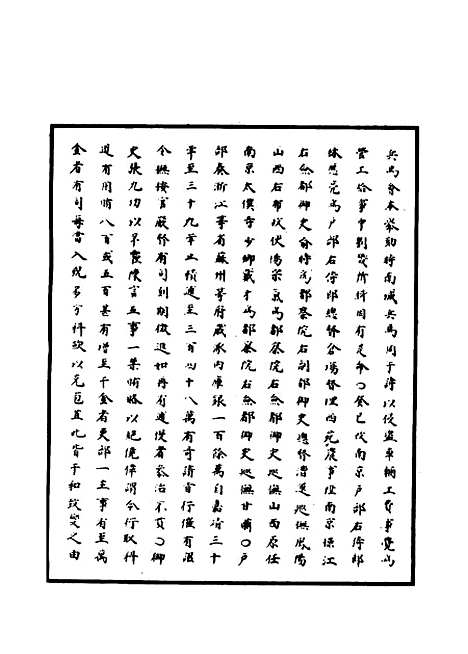 兵馬各本舉助時南城兵馬周于德以侵盜車輛工食事覺為
管工給事中劉
所糾因有是命○癸巳改南京戶部右侍郎
為戶部右侍郎總督倉場督理西苑農事陞南京操江
右僉都御史俞時為都察院右副都御史總督漕運巡撫鳳陽
山西右布政伏陽宗氣為都察院右僉都御史巡撫山西原任
南京太僕寺少卿戴才為都察院右僉都御史巡撫甘肅○戶
部奏浙江事有蘇州等府歲派內庫銀一百餘萬自嘉靖三十
年至三十九年止積逋至三百四十八萬有奇請
行催有湿
令撫按官嚴督有司刻期徵進如再有逋慢者參治不貸○御
史張九功以星霾陳言五事一禁賄賂以絕僥倖謂今行取科
道有用賄八百或五百甚有增至千金者吏部一主事有至萬
金者有司每當入覲多方科歛以充苞苴此皆于和致災之由